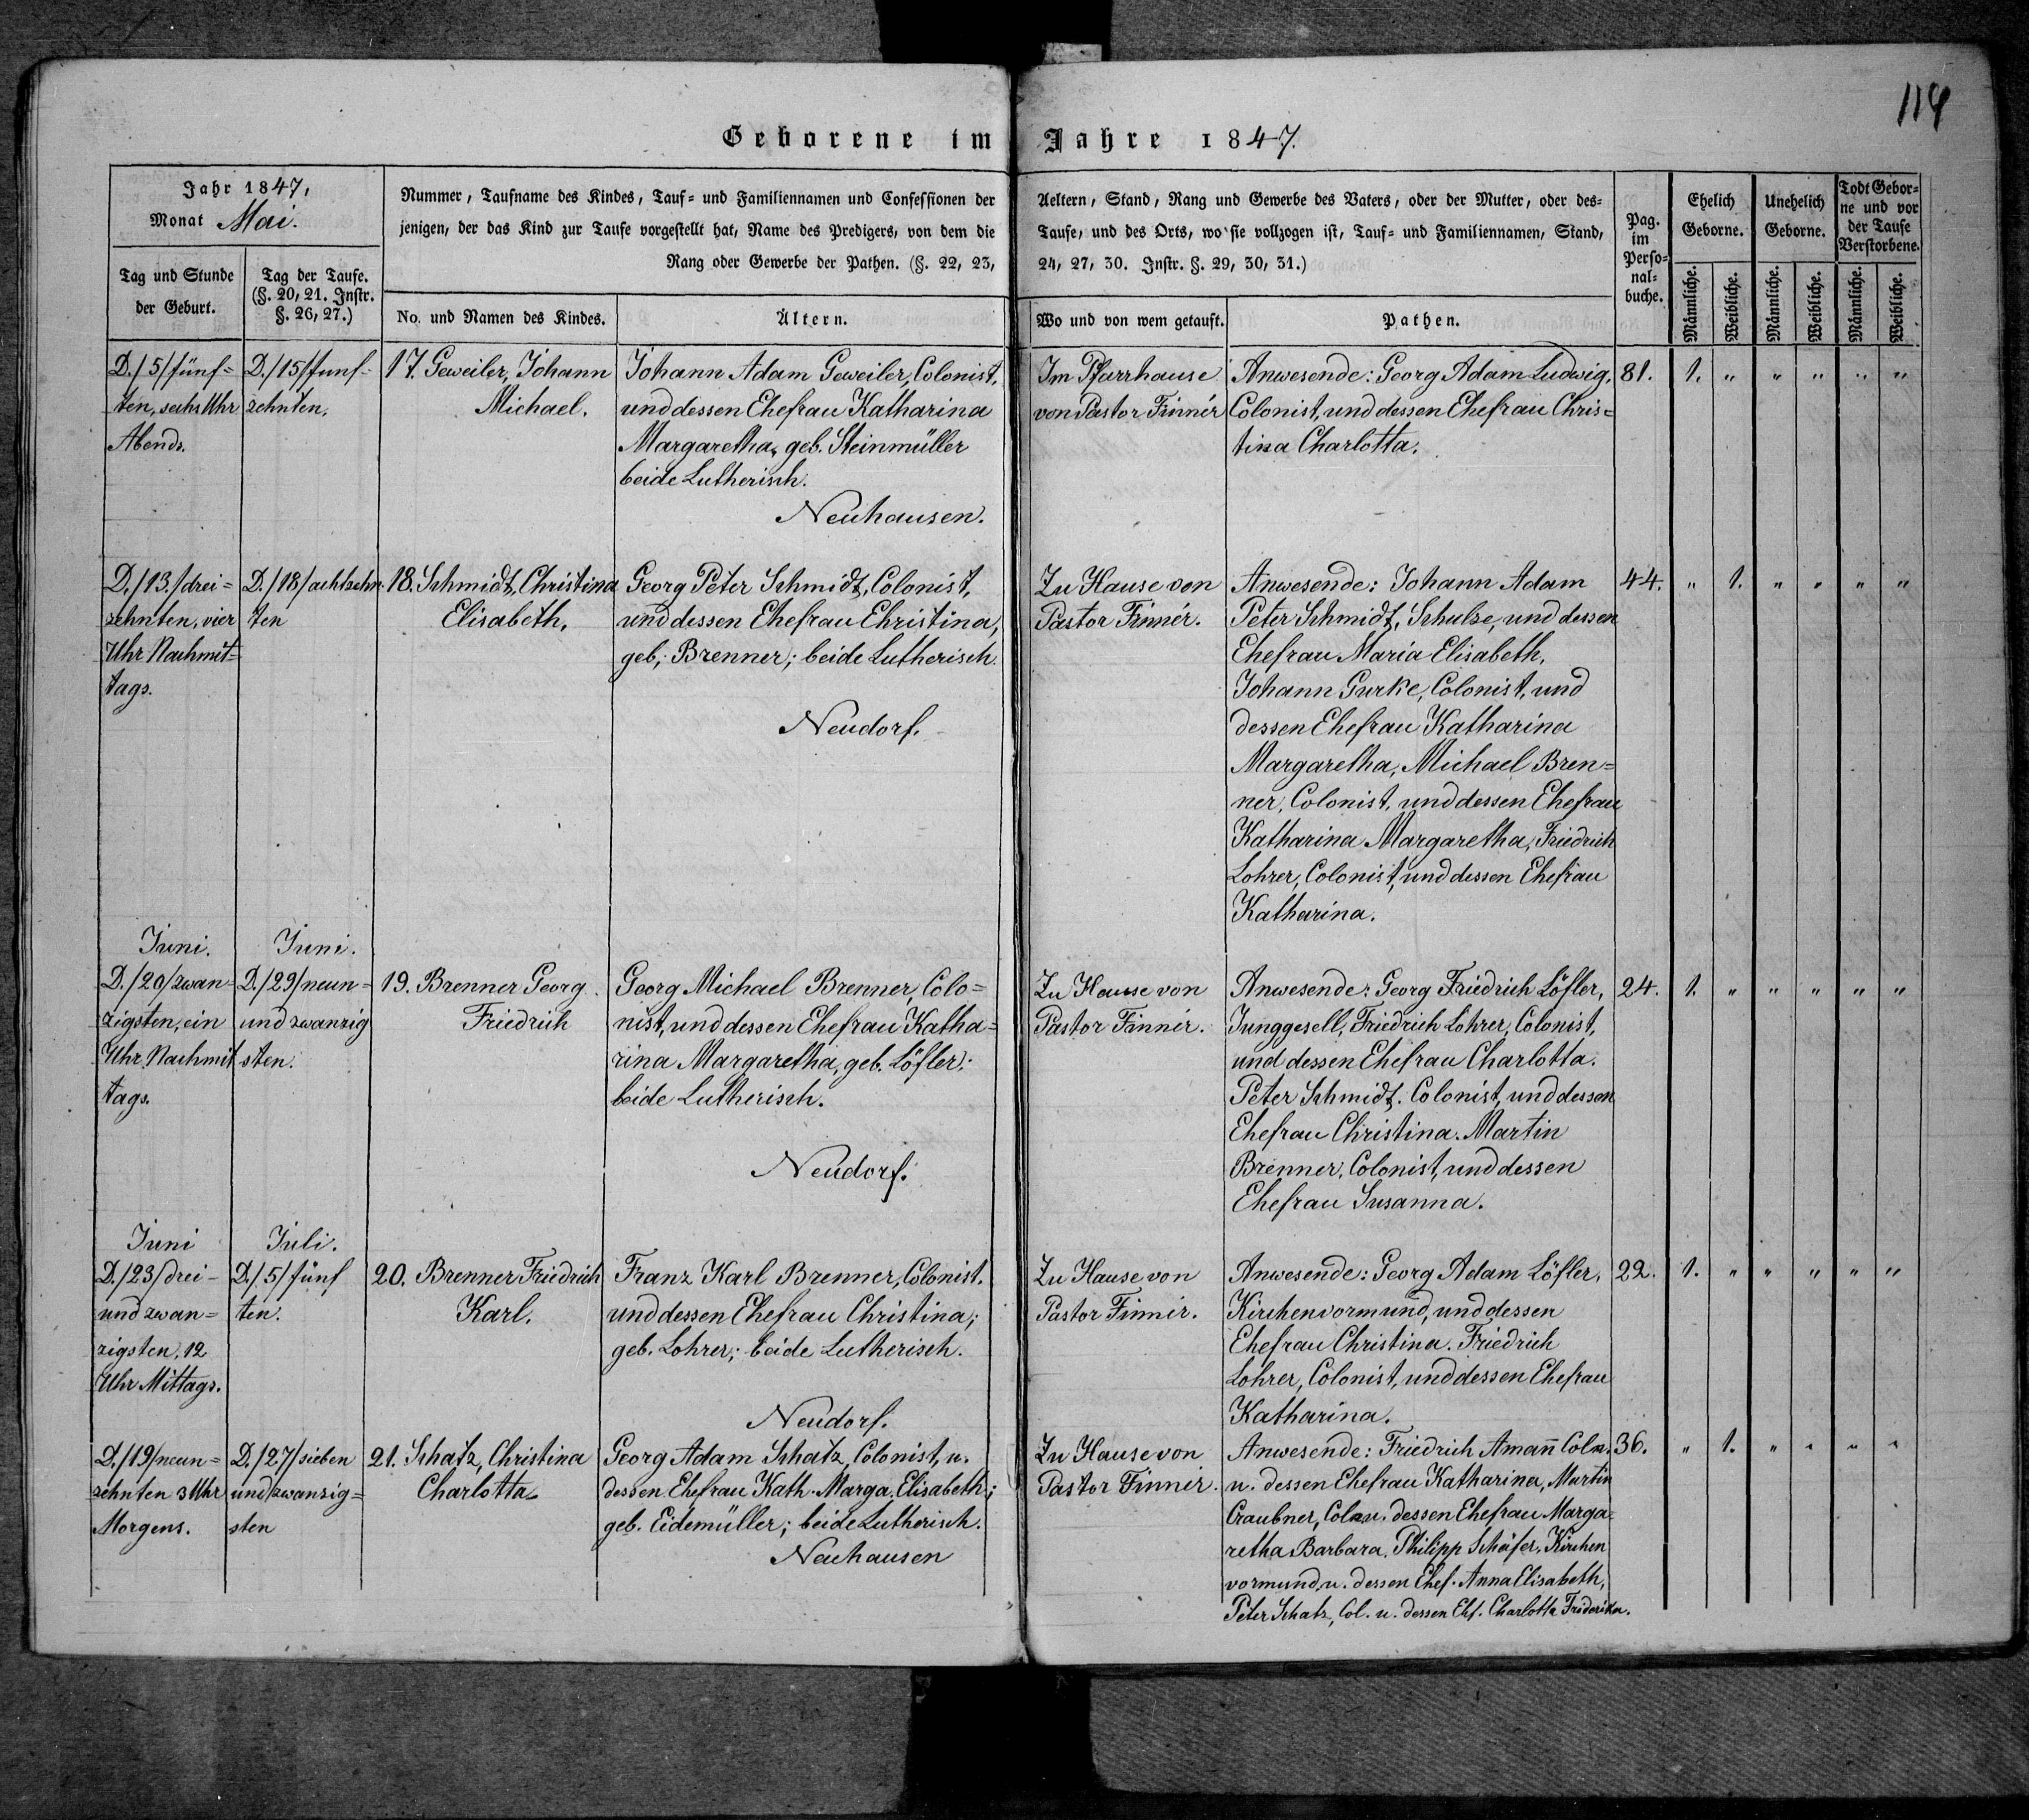 114
Geborene im Jahre 1847.
Jahr 1847,
Monat Mai.
Tag und Stunde der Geburt.
Tag der Taufe. (§. 20, 21. Instr. §. 26, 27.)
Nummer, Taufname des Kindes, Tauf- und Familiennamen und Confessionen der Aeltern, Stand, Rang und Gewerbe des Vaters, oder der Mutter, oder des=
jenigen, der das Kind zur Taufe vorgestellt hat, Name des Predigers, von dem die Taufe, und des Orts, wo sie vollzogen ist, Tauf- und Familiennamen, Stand,
Rang oder Gewerbe der Pathen. (§. 22, 23, 24, 27, 30. Instr. §. 29, 30, 31.)
No. und Namen des Kindes.
Ältern.
Wo und von wem getauft.
Pathen.
Pag. im Perso=nal=buche.
Ehelich Geborne.
Unehelich Geborne.
Todt Gebor=ne und vor der Taufe Verstorbene.
Männliche. Weibliche. Männliche. Weibliche. Männliche. Weibliche.
D./5/fünf=
ten, sechs Uhr
Abends.
D./15/funf=
zehnten.
17. Geweiler, Johann
Michael.
Johann Adam Geweiler, Colonist,
und dessen Ehefrau Katharina
Margaretha, geb. Steinmüller
beide Lutherisch.
Neuhausen.
Im Pfarrhause
von Pastor Finnér
Anwesende: Georg Adam Ludwig,
Colonist, und dessen Ehefrau Chris=
tina Charlotta.
81. 1. " " " " "
D./13./drei=
zehnten, vier
Uhr Nachmit=
tags.
D./18/achtzehn
ten
18. Schmidt, Christina
Elisabeth.
Georg Peter Schmidt, Colonist,
und dessen Ehefrau Christina,
geb. Brenner; beide Lutherisch.
Neudorf.
Zu Hause von
Pastor Finnér.
Anwesende: Johann Adam
Peter Schmidt, Schulze, und dessen
Ehefrau Maria Elisabeth,
Johann Gurke, Colonist, und
dessen Ehefrau Katharina
Margaretha, Michael Bren=
ner, Colonist, und dessen Ehefrau
Katharina Margaretha, Friedrich
Lohrer, Colonist, und dessen Ehefrau
Katharina.
44. " 1. " " " "
Juni.
D./20/zwan=
zigsten, ein
Uhr Nachmit
tags.
Juni.
D./29/neun=
und zwanzig
sten.
19. Brenner Georg
Friedrich
Georg Michael Brenner, Colo=
nist, und dessen Ehefrau Katha=
rina Margaretha, geb. Löfler;
beide Lutherisch.
Neudorf.
Zu Hause von
Pastor Finnér.
Anwesende: Georg Friedrich Löfler,
Junggesell, Friedrich Lohrer, Colonist,
und dessen Ehefrau Charlotta.
Peter Schmidt. Colonist, und dessen
Ehefrau Christina. Martin
Brenner, Colonist, und dessen
Ehefrau Susanna.
24. 1. " " " " "
Juni
D./23/drei=
und zwan=
zigsten, 12
Uhr Mittags.
Juli.
D./5/fünf
ten.
20. Brenner Friedrich
Karl.
Franz Karl Brenner, Colonist.
und dessen Ehefrau Christina;
geb. Lohrer; beide Lutherisch.
Neudorf.
Zu Hause von
Pastor Finnér.
Anwesende: Georg Adam Löfler,
Kirchenvormund, und dessen
Ehefrau Christina. Friedrich
Lohrer, Colonist, und dessen Ehefrau
Katharina.
22. 1. " " " " "
D./19/neun=
zehnten 3 Uhr
Morgens.
D./27/sieben
und zwanzig=
sten
21. Schatz, Christina
Charlotta
Georg Adam Schatz, Colonist, u.
dessen Ehefrau Kath. Marga. Elisabeth;
geb. Eidemüller; beide Lutherisch.
Neuhausen
Zu Hause von
Pastor Finnér.
Anwesende: Friedrich Amañ Coln.
u. dessen Ehefrau Katharina, Martin
Craubner, Col. u. dessen Ehefrau Marga=
retha Barbara, Philipp Schäfer, Kirchen
vormund, u. dessen Ehef. Anna Elisabeth,
Peter Schatz, Col. u. dessen Ehf. Charlotta Friderika.
36. " 1. " " " "